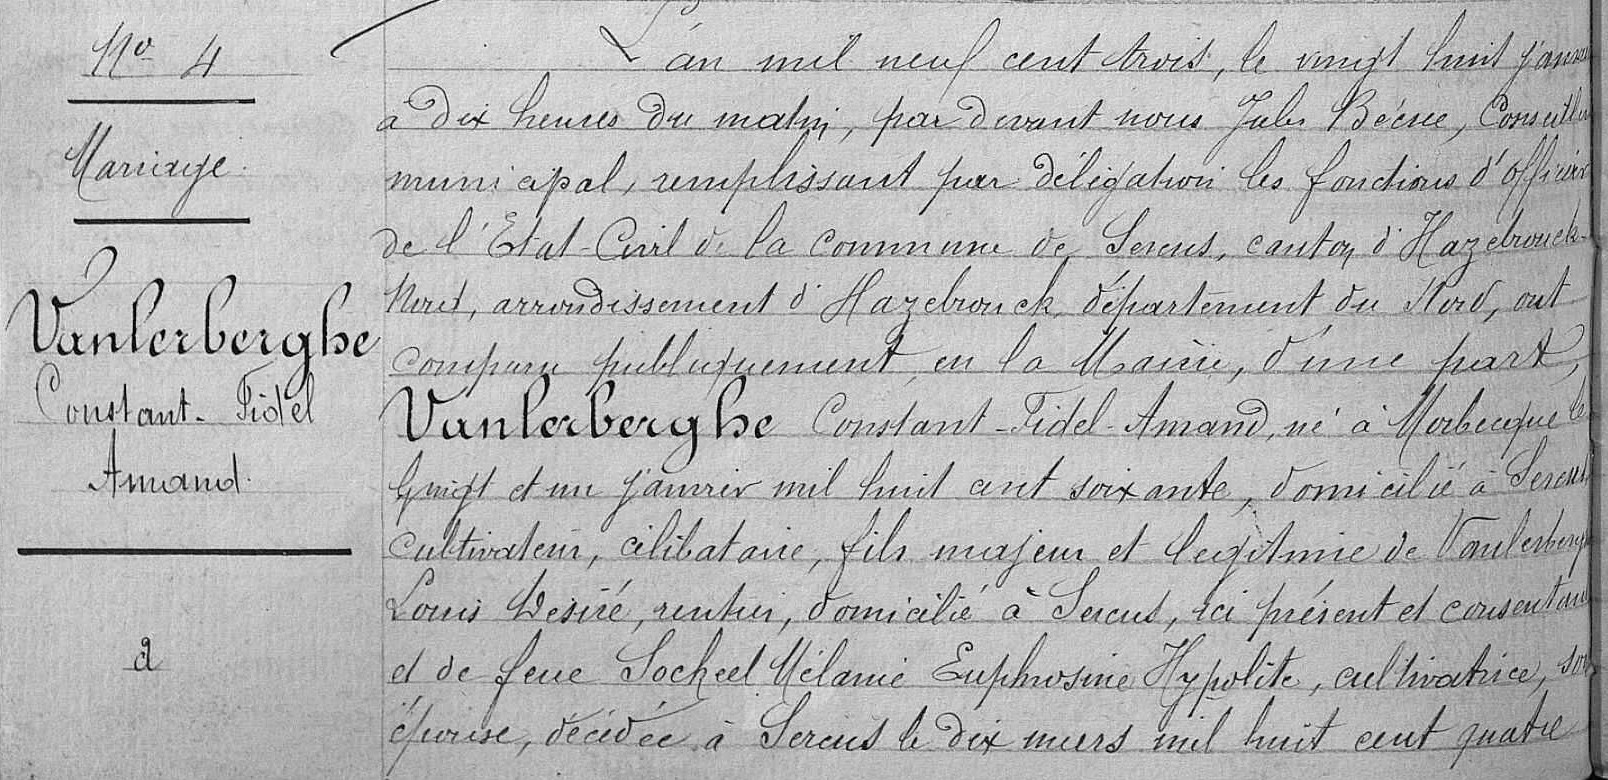 No 4
Mariage
Vanlerberghe
Constant-Fidel
Amand.
a
L'an mil neuf cent trois, le vingt huit janvier
à dix heures du matin, par devant nous Jules Bécue, Conseiller
municipal, remplissant par délégation les fonctions d'officier
de l'Etat-Civil de la commune de Sercus, canton d'Hazebrouck-
Nord, arrondissement d'Hazebrouck, département du Nord, ont
comparu publiquement en la Mairie, d'une part,
Vanlerberghe Constant-Fidel-Amand, né à Morbecque le
vingt et un janvier mil huit cent soixante, domicilié à Sercus,
cultivateur, célibataire, fils majeur et légitime de Vanlerberghe
Louis Désiré, rentier, domicilié à Sercus, ici présent et consentant
et de feue Sockeel Mélanie Euphrosine Hypolite, cultivatrice, son
épouse, décédée à Sercus le dix mars mil huit cent quatre